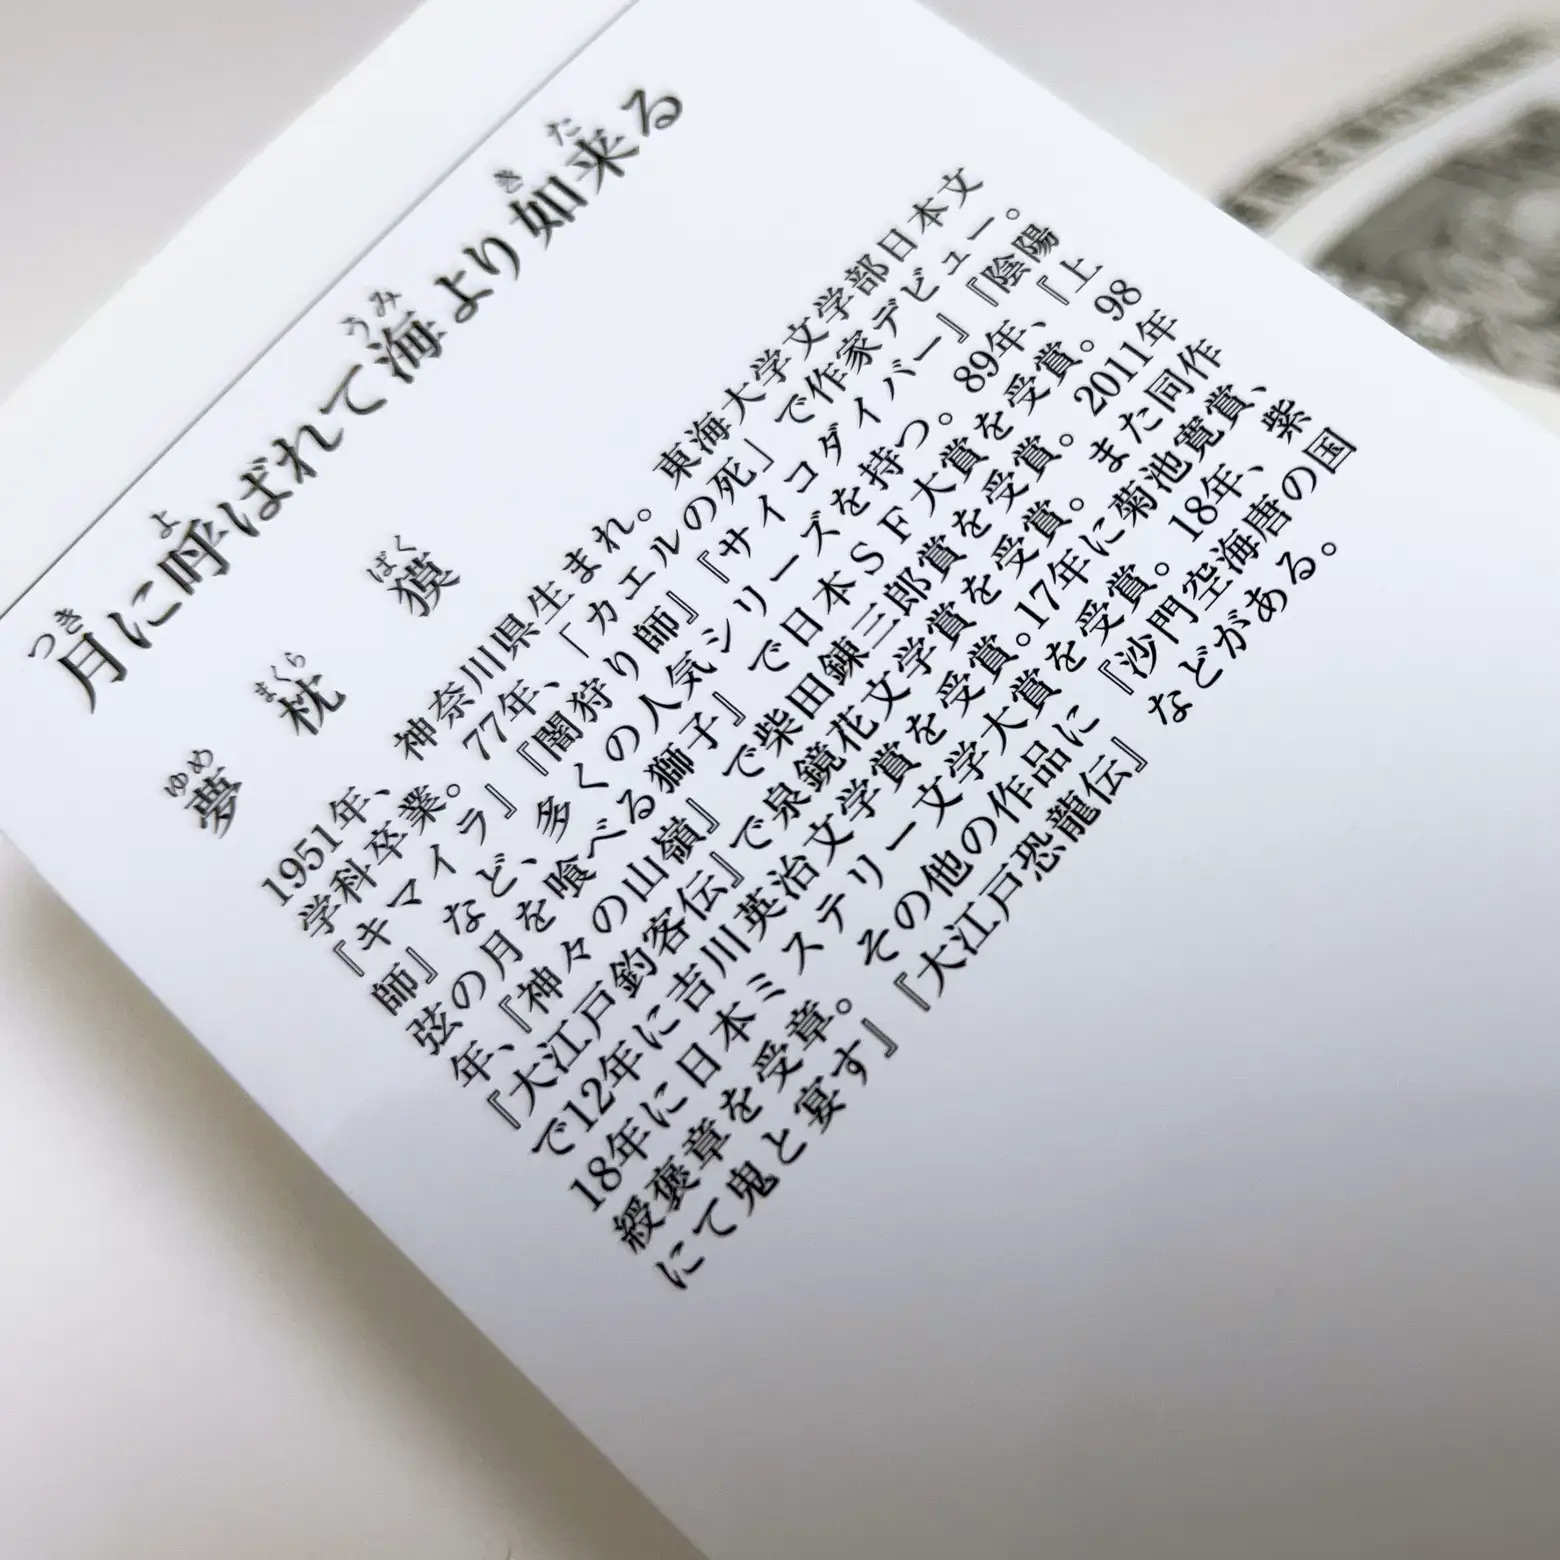 月に呼ばれて海より如来る
つき よ うみ き た
夢枕 獏
ゆめ まくら ばく
1951年、神奈川県生まれ。東海大学文学部日本文
学科卒業。77年、「カエルの死」で作家デビュー。
『キマイラ』『闇狩り師』『サイコダイバー』『陰陽
師』など、多くの人気シリーズを持つ。89年、『上
弦の月を喰べる獅子』で日本ＳＦ大賞を受賞。98
年、『神々の山嶺』で柴田錬三郎賞を受賞。2011年
『大江戸釣客伝』で泉鏡花文学賞を受賞。また同作
で12年に吉川英治文学賞を受賞。17年に菊池寛賞、
18年に日本ミステリー文学大賞を受賞。18年、紫
綬褒章を受章。その他の作品に『沙門空海唐の国
にて鬼と宴す』『大江戸恐龍伝』などがある。